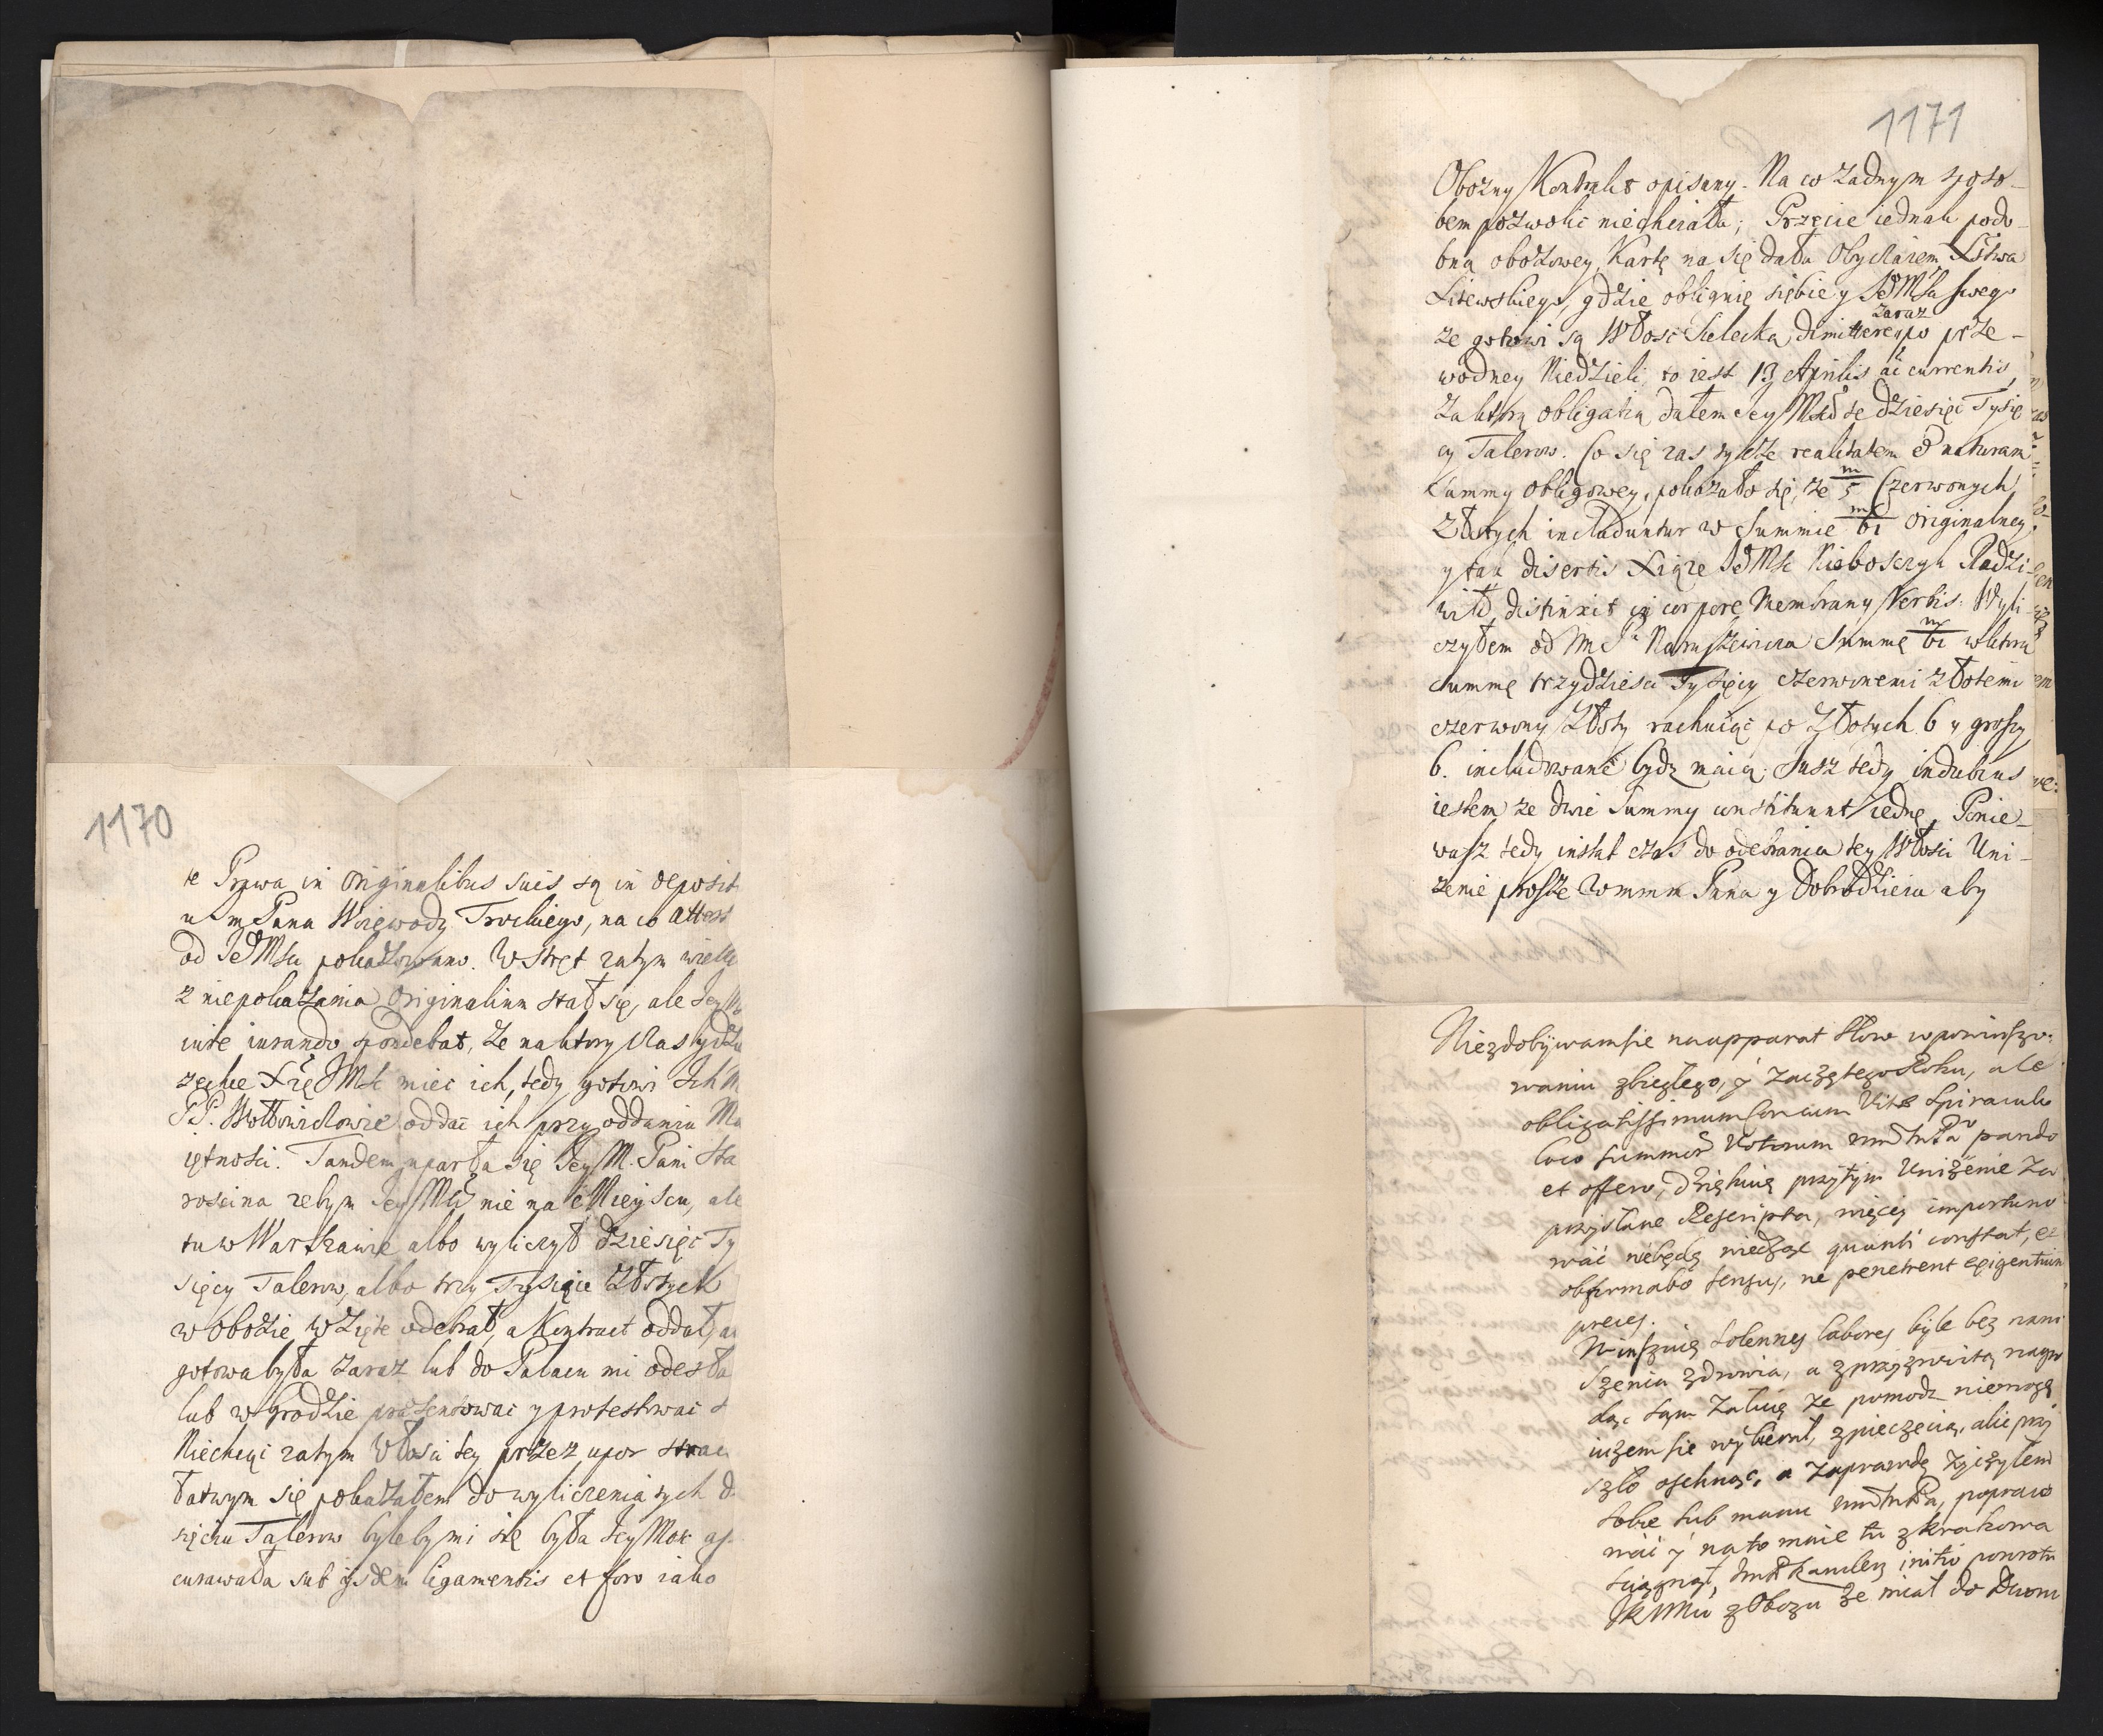 1170
te Prawa in Originalibus suis są in deposit
u Im Pana Woiewody Trockiego, na co attest
od JeoMści pokazowano. Wstręt zatym wielki
z niepokazania Originalium stał się, ale Jey
iure iurando spondebat, że na ktory czas
zechce Xże JMść miec ich, tedy gotowi Ich M
PP. Wołłowiczowie oddać ich przy oddaniu Ma
iętnosci. Tandem uparła się Jey M. Pani Sta
rościna zebym Jey Mści nie na Mieyscu, ale
tu w Warszawie albo wyliczył dziesięć Ty
sięcy Talerow, albo trzy Tysiące Złotych
w obozie wzięte odebrał, a Kontract oddał,
gotowa była zaraz lub do Pałacu mi odesła
lub w Grodzie prezentować y protestować
Niechcąc zatym Włosci tey przez upor strac
łatwym się pokazałem do wyliczenia tych d
sięciu Talerow byleby mi się była Jey Mość as
curawała sub iisdem ligamentis et foro iako
1171
Obozny Kontrakt opisany. Na co żadnym sposo-
bem pozwolić niechciała; Przecie iednak podo-
bną obozowey Kartę na się dała Obyczaiem
Litewskiego, gdzie obliguie siebie y JeoMścia swego
zaraz
że gotowi są Włość Sielecką dimittere po prze-
wodney Niedzieli, to iest 13 Aprilis ai currentis,
Za ktorą obligatią dałem Jey Mści te dziesięć Tysię
cy Talerow. Co się zas tycze realitatem et naturam
Summy obligowey, pokazało się, że 5 Czerwonych
Złotych includuntur w Summie 61 originalney,
y tak disertis Xiąże JeoMść Nieboszczyk Radzi-
wił distinxit in corpore Membrany Verbis: Wyli-
czyłem od Im Pa Naruszewicza Summę 61 w ktorą
summę trzydziesci Tysięcy czerwonemi złotemi
czerwony Złoty rachuiąc po Złotych 6 y groszy
6. includowane bydz maią; Jusz tedy indubius
iestem że dwie Summy constituunt iednę. Ponie-
wasz tedy instat czas do odebrania tey Włosci Uni-
żenie proszę Wmm Pana y Dobrodzieia aby
Niezdobywam sie na apparat słow w powinszo-
waniu zbiegłego, y zaczętego Roku, ale
obligatissimum cum Vitae Spiraculo
loco Summor Votorum pando
et offero, dziękuię przytym Uniżenie za
przysłane Rescripta, więcey importuno
wać niebędę wiedząc quanti constat,
obfirmabo sensus, ne penetrent exigentium
preces.
Winszuię solennes labores byle bez naru
szenia zdrowia, a z przyzwoitą nagro
dą, sam żałuię że pomodz niemogę
iużem sie wybierał, z pieczęcią, alie przy
szło oschnąć, a zaprawdę życzyłem
sobie sub manu popraco
wać y na to mnie tu z Krakowa
sciągnął, Kanclerz initio powrotu
JKMci z Obozu że miał do Dworu